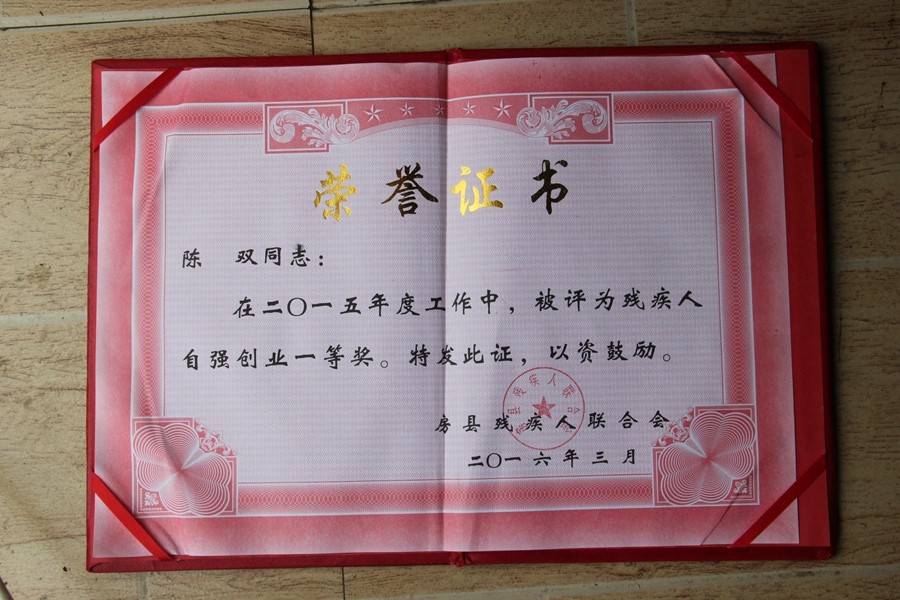 荣誉证书
陈 双同志：
在二〇一五年度工作中，被评为残疾人
自强创业一等奖。特发此证，以资鼓励。
房县残疾人联合会
房县残疾人联合会
二〇一六年三月